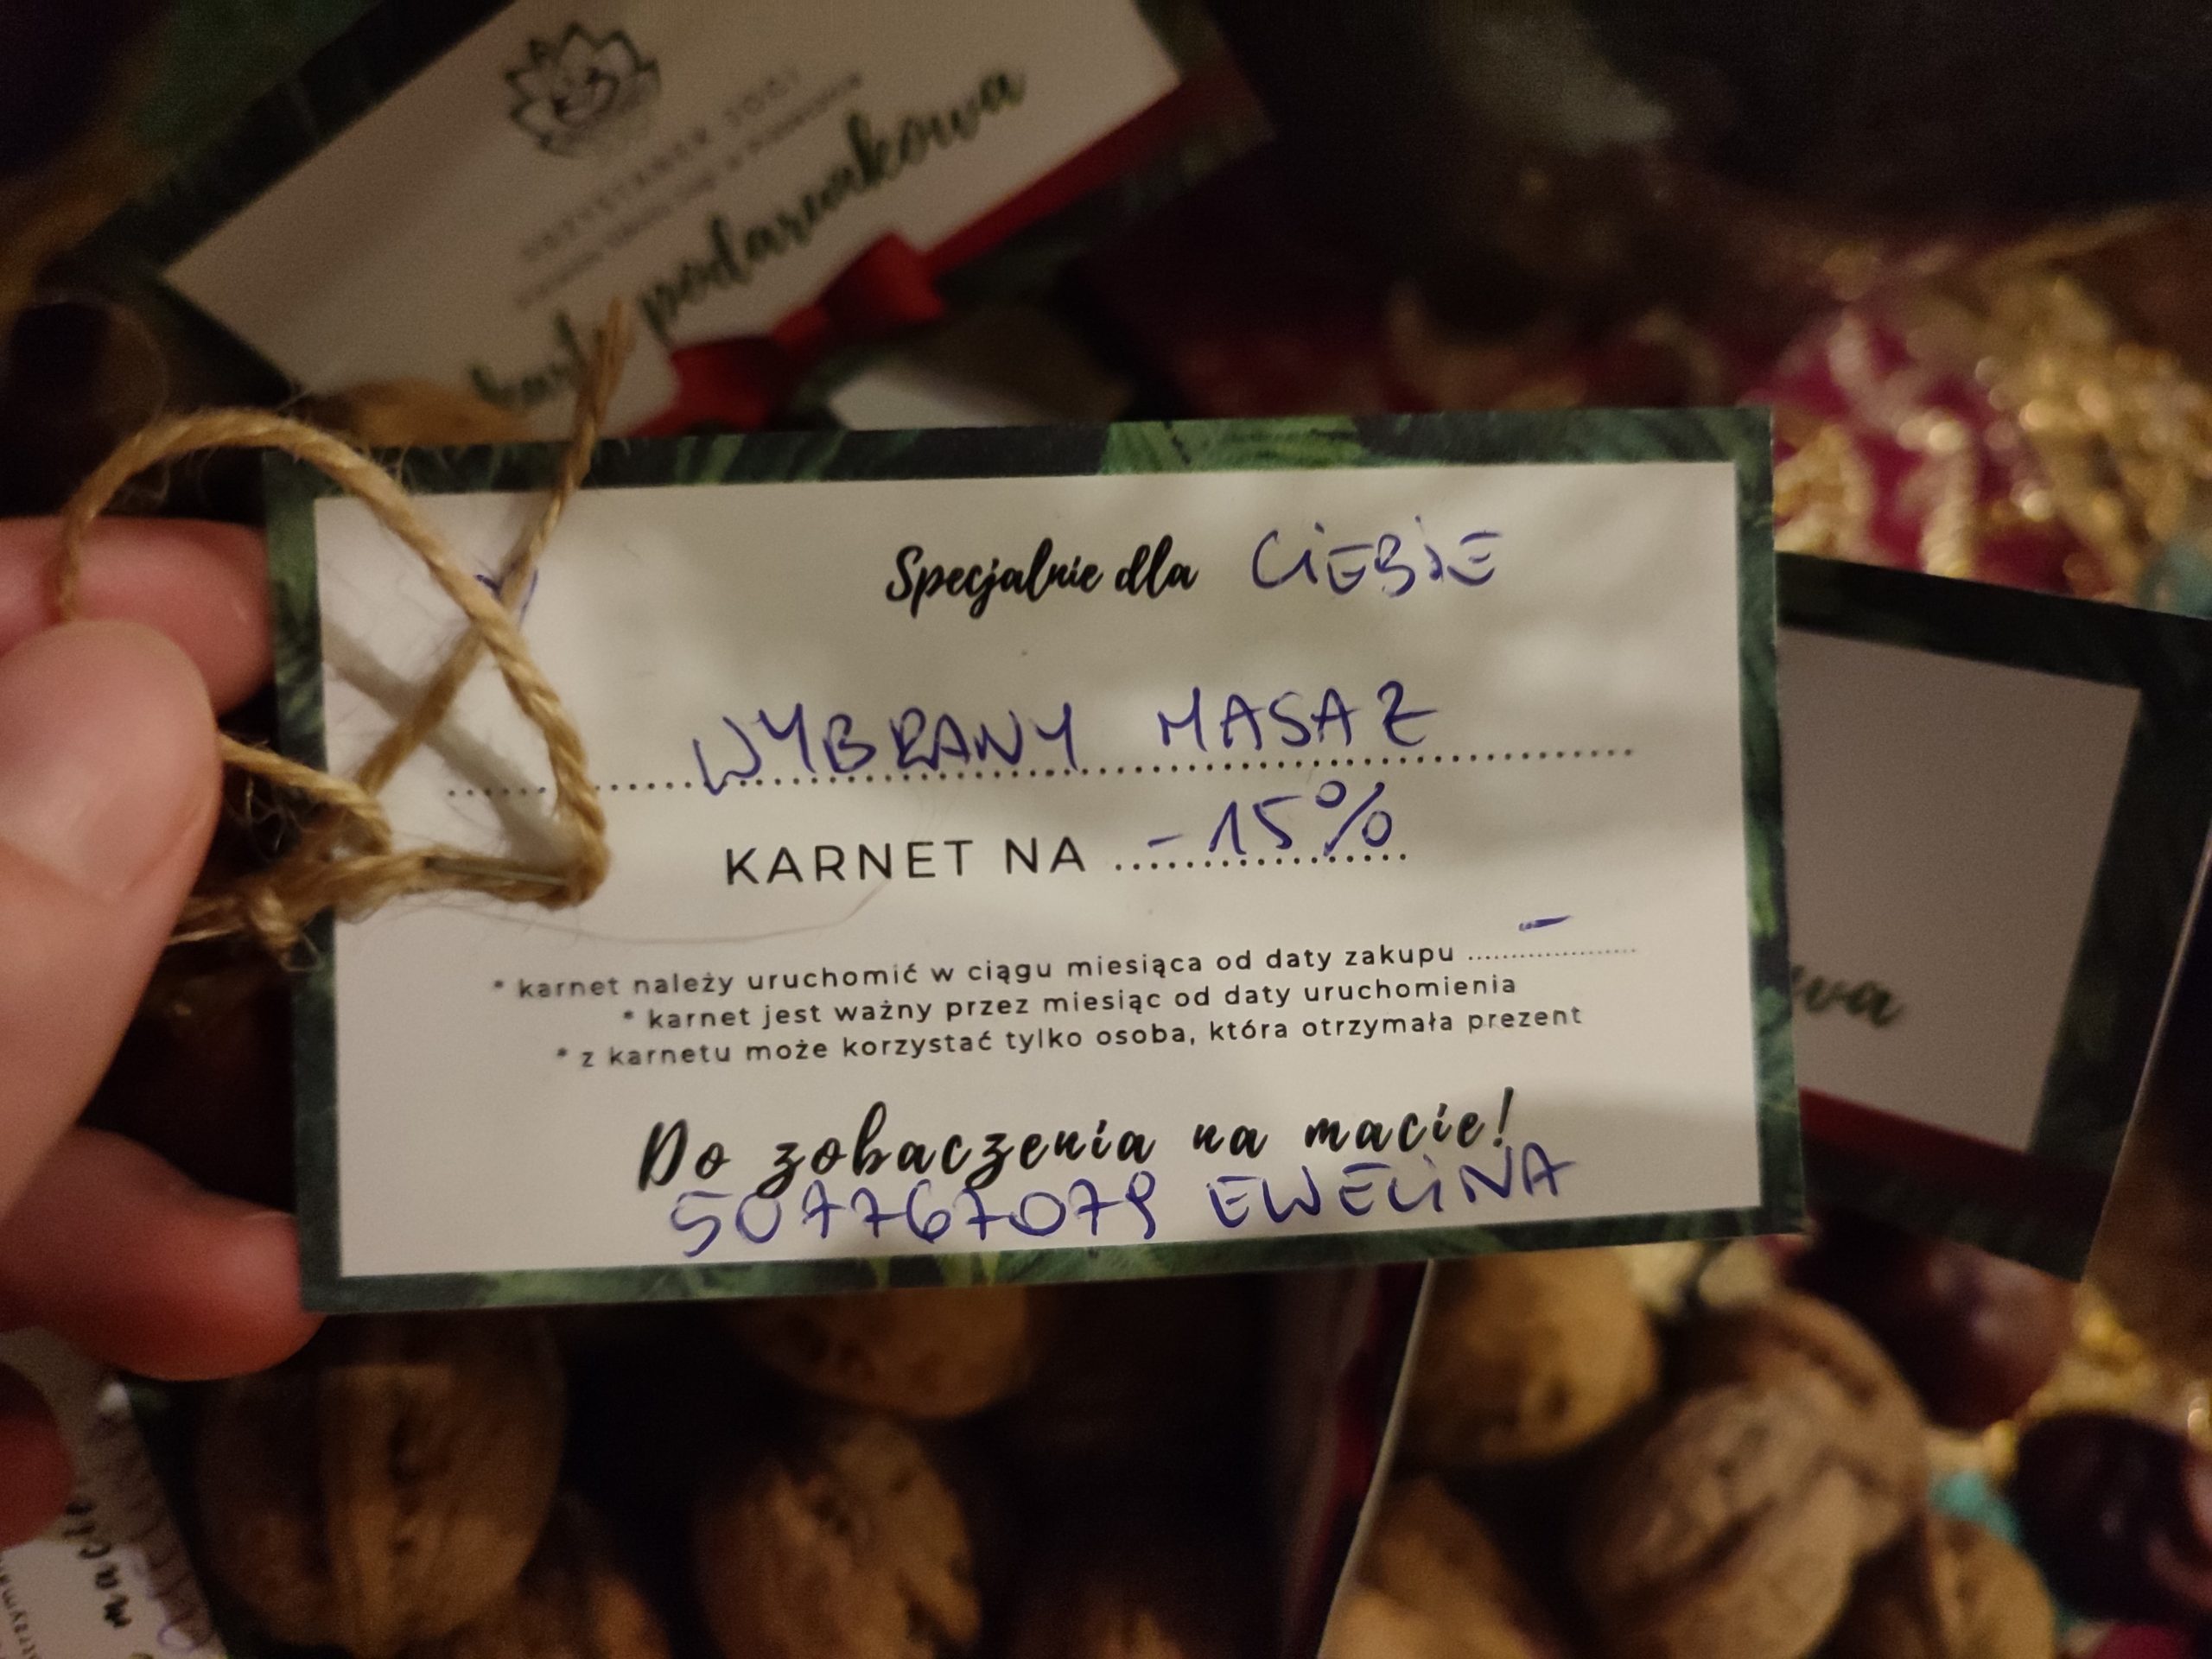 PRZYSTANEK JOGI
karta podarunkowa
Specjalnie dla CIEBIE
WYBRANY MASAŻ
KARNET NA - 15%
* karnet należy uruchomić w ciągu miesiąca od daty zakupu -
* karnet jest ważny przez miesiąc od daty uruchomienia
* z karnetu może korzystać tylko osoba, która otrzymała prezent
Do zobaczenia na macie!
507767079 EWELINA
wa
macie